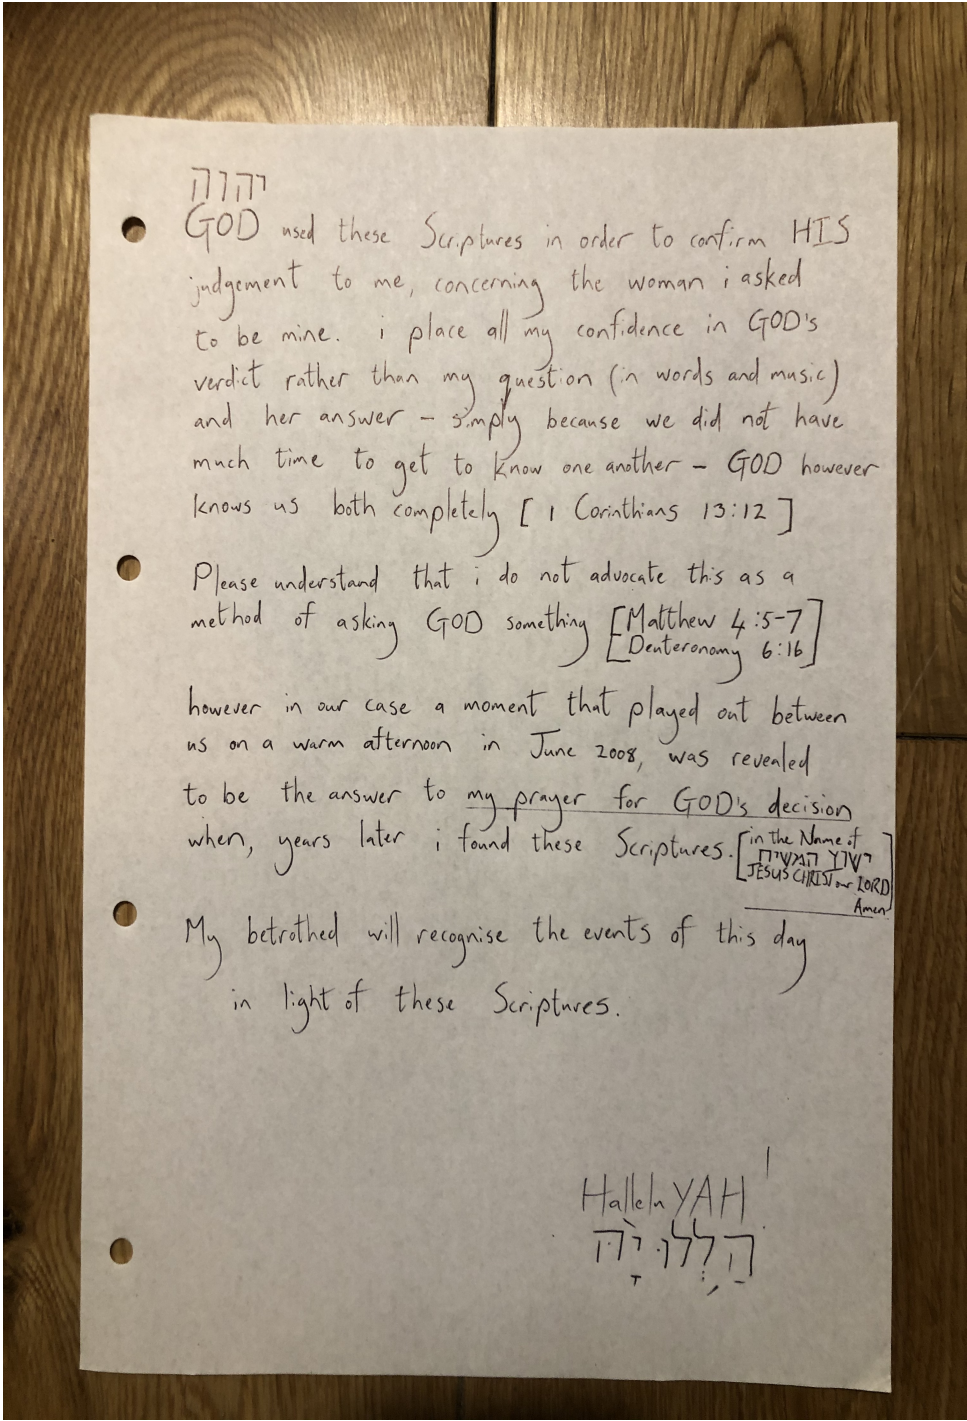 יהוה
GOD used these Scriptures in order to confirm HIS
judgement to me, concerning the woman i asked
to be mine. i place all my confidence in GOD's
verdict rather than my question (in words and music)
and her answer – simply because we did not have
much time to get to know one another – GOD however
knows us both completely [ 1 Corinthians 13:12 ]
Please understand that i do not advocate this as a
method of asking GOD something [Matthew 4:5-7
Deuteronomy 6:16]
however in our case a moment that played out between
us on a warm afternoon in June 2008, was revealed
to be the answer to my prayer for GOD's decision
when, years later i found these Scriptures. [in the Name of
ישוע המשיח
JESUS CHRIST our LORD
Amen]
My betrothed will recognise the events of this day
in light of these Scriptures.
HalleluYAH !
הַלְלוּ יָהּ